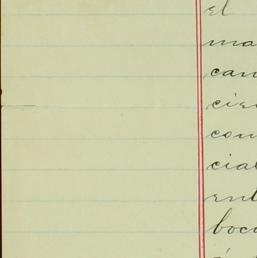 el
ma
can
cie
con
cial
ent
boc